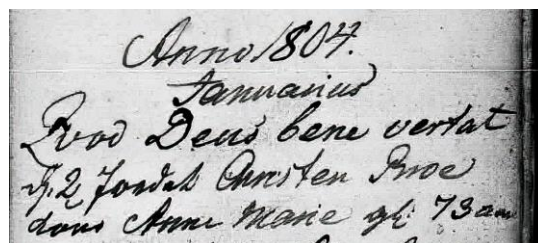 Anno 1804.
Januarius
Qvod Deus bene vertat
d. 2 Jordet Christen Proe
Anne Marie gl: 73 aar